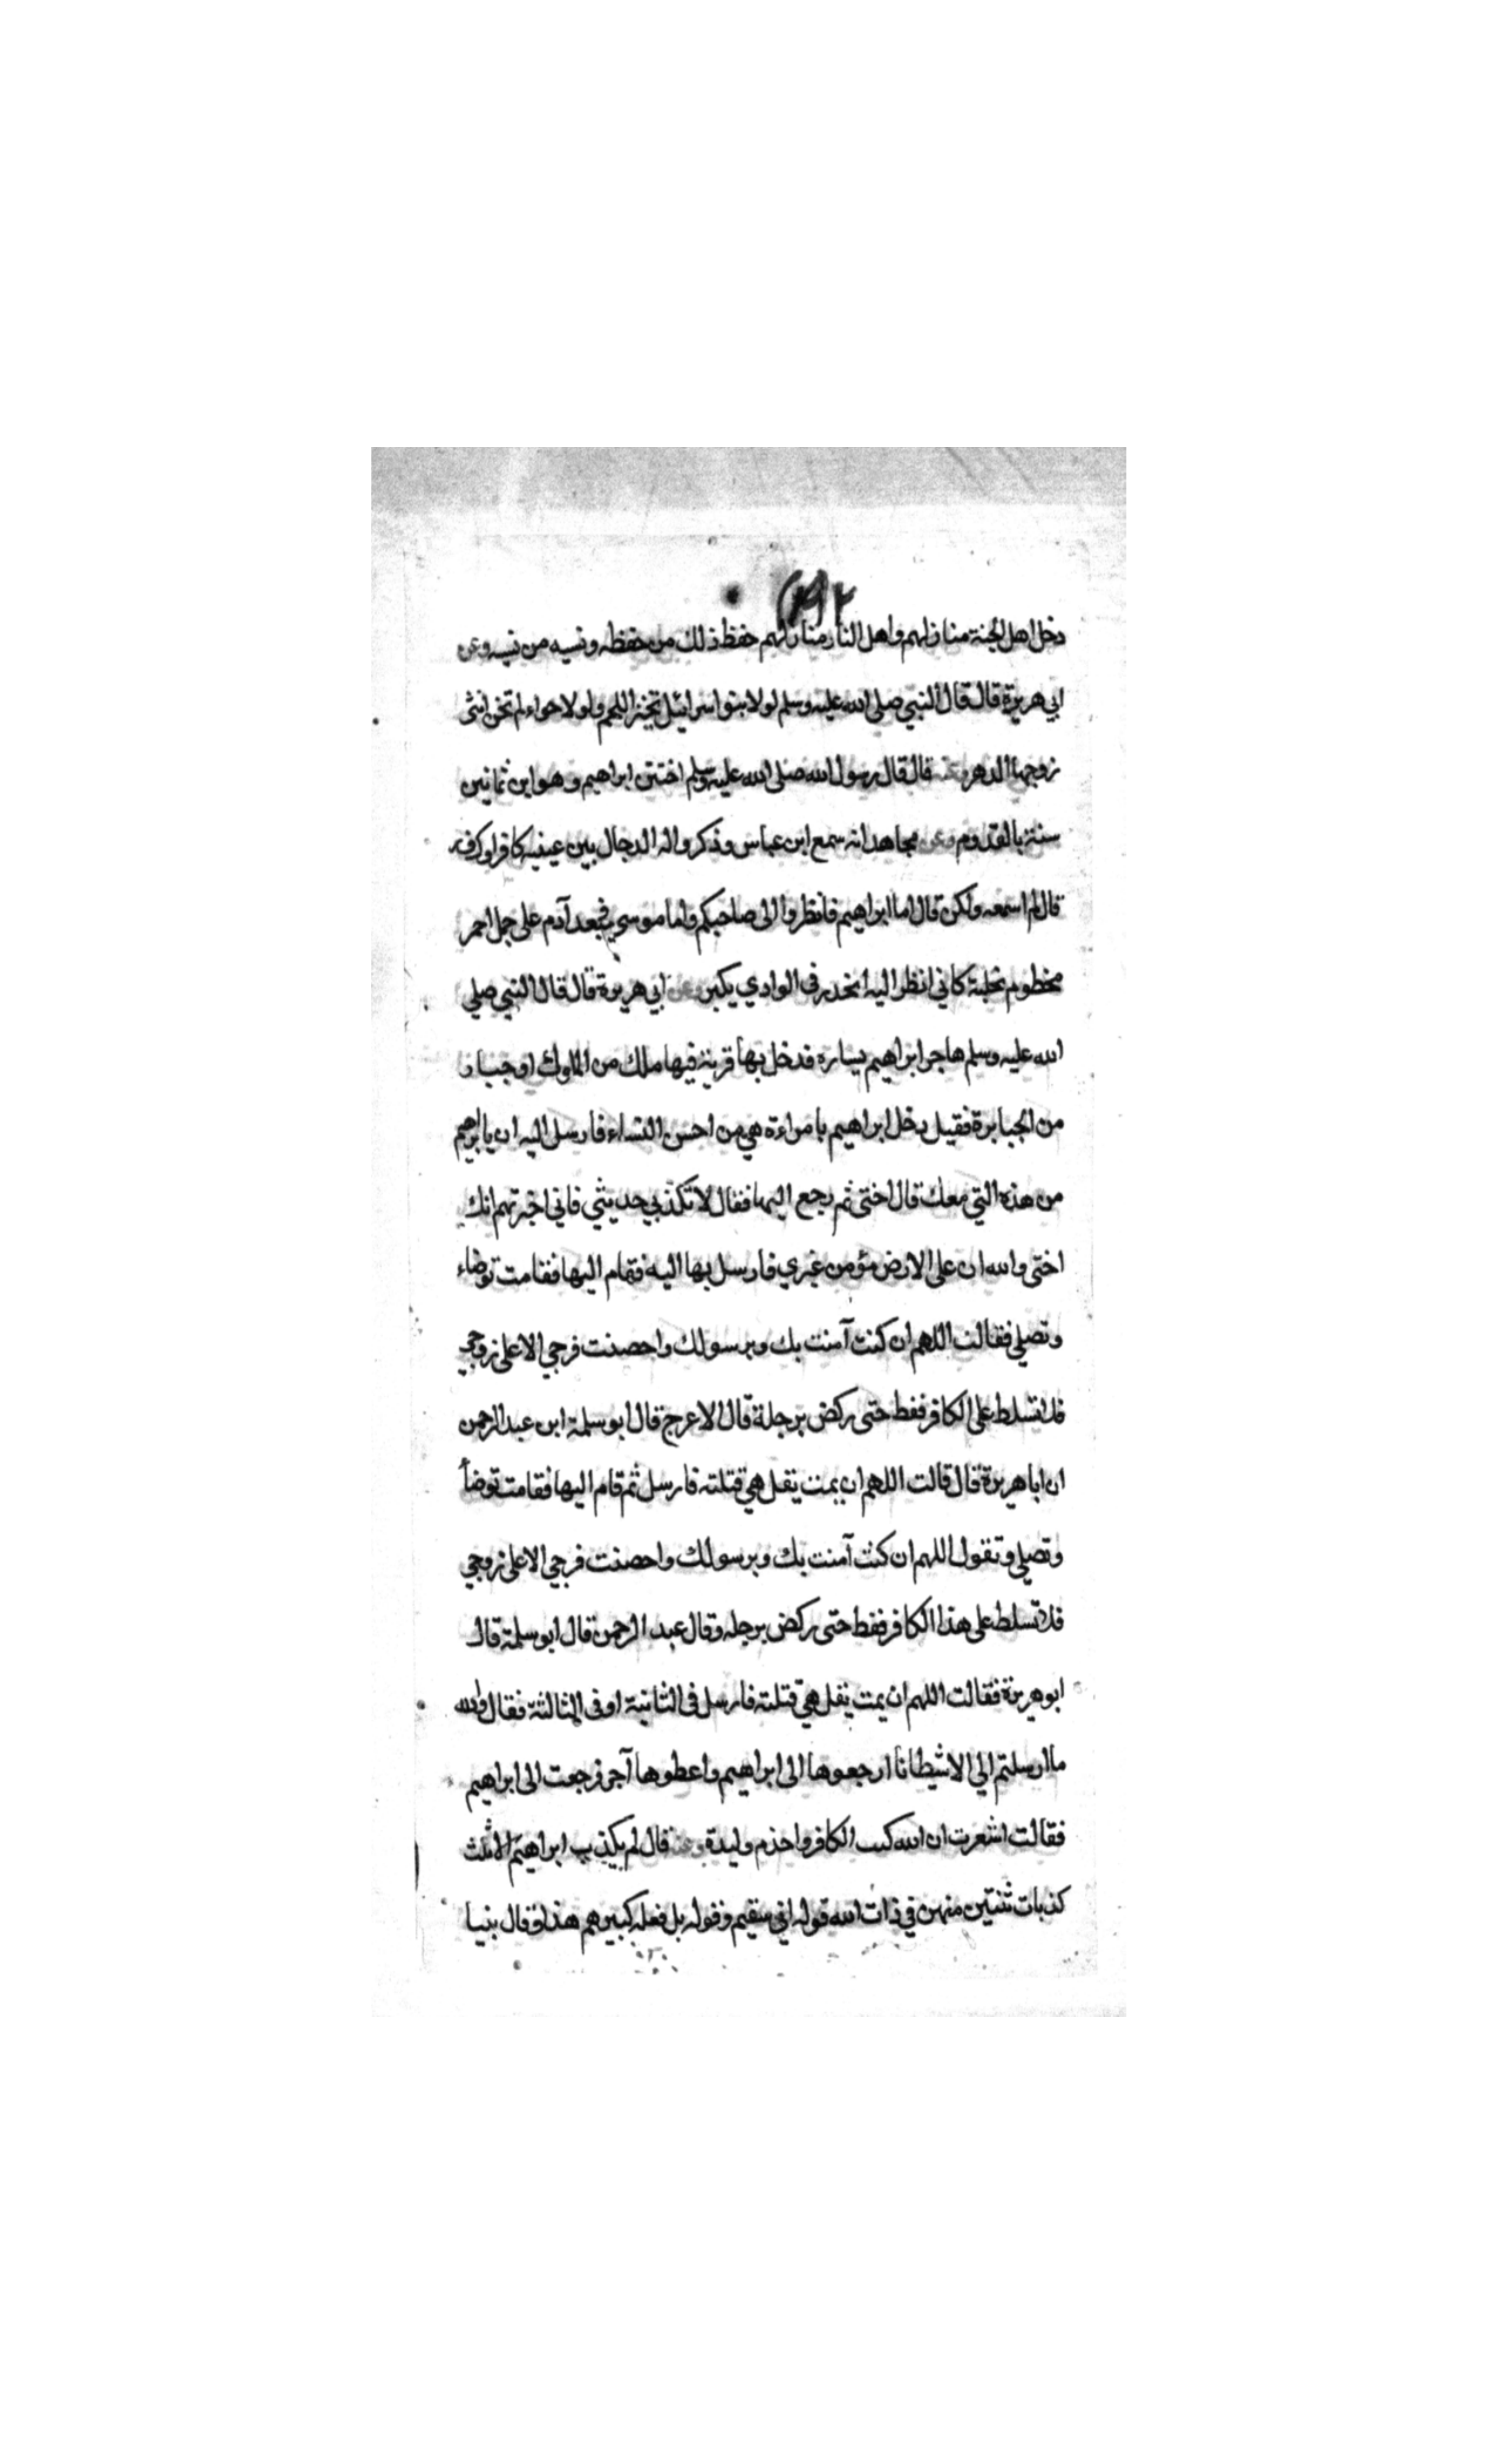 ١٩٢
دخل اهل الجنة منازلهم واهل النار منازلهم حفظ ذلك من حفظه ونسيه من نسيه وعن
ابي هريرة قال قال النبي صلى الله عليه وسلم لولا بنوا اسرائيل لم يخنز اللحم ولولا حواء لم تخن انثى
زوجها الدهر وعنه قال قال رسول الله صلى الله عليه وسلم اختتن ابراهيم وهو ابن ثمانين
سنة بالقدوم وعن مجاهد انه سمع ابن عباس وذكروا له الدجال بين عينيه كافر او ك ف ر
قال لم اسمعه ولكن قال اما ابراهيم فانظروا الى صاحبكم واما موسى فجعد آدم على جمل احمر
مخطوم بخلبة كاني انظر اليه انحدر في الوادي يكبر وعن ابي هريرة قال قال النبي صلي
الله عليه وسلم هاجر ابراهيم بساره فدخل بها قرية فيها ملك من الملوك او جبار
من الجبابرة فقيل دخل ابراهيم بامراءة هي من احسن النساء فارسل اليه ان يا ابراهيم
من هذه التي معك قال اختى ثم رجع اليها فقال لا تكذبي حديثي فاني اخبرتهم انك
اختى والله ان على الارض مؤمن غيري فارسل بها اليه فقام اليها فقامت توضاء
وتصلي فقالت اللهم ان كنت آمنت بك وبرسولك واحصنت فرجي الا على زوجي
فلا تسلط على الكافر فغط حتى ركض برجلة قال الاعرج قال ابو سلمة ابن عبد الرحمن
ان ابا هريرة قال قالت اللهم ان يمت يقل هي قتلته فارسل ثم قام اليها فقامت توضأ
وتصلي وتقول اللهم ان كنت آمنت بك وبرسولك واحصنت فرجي الا على زوجي
فلا تسلط على هذا الكافر فغط حتى ركض برجله وقال عبد الرحمن قال ابو سلمة قال
ابو هريرة فقالت اللهم ان يمت يقل هي قتلته فارسل في الثانية او في الثالثة فقال والله
ما ارسلتم الي الا شيطانا ارجعوها الى ابراهيم واعطوها آجر فرجعت الى ابراهيم
فقالت اشعرت ان الله كبت الكافر واخذم وليدة وعنه قال لم يكذب ابراهيم الا ثلث
كذبات ثنتين منهن في ذات الله قوله اني سقيم وقوله بل فعله كبيرهم هذا وقال بنيا